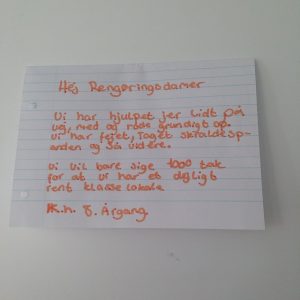 Hej Rengøringsdamer
Vi har hjulpet jer lidt på
vej, med og rode grundigt op.
Vi har fejet, Taget skraldesp-
anden og så videre.
Vi vil bare sige 1000 tak
for at vi har et dejligt
rent klasse lokale
K.h. 8. Årgang